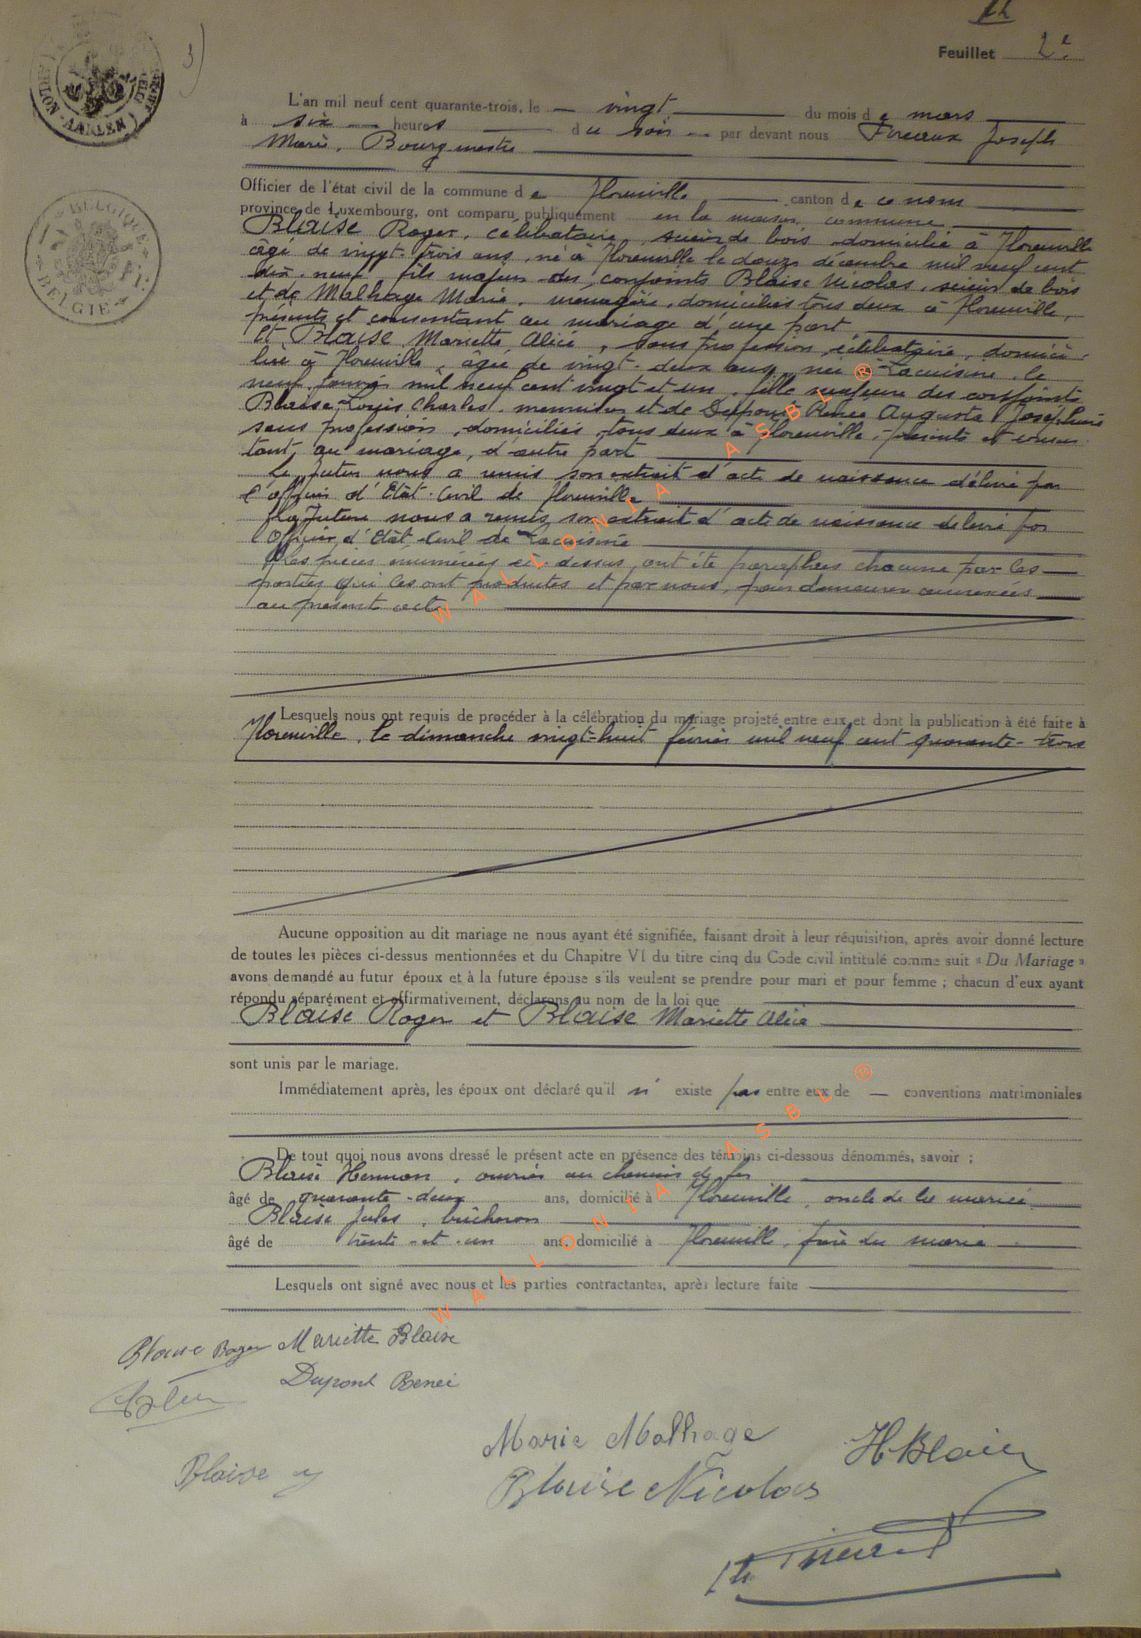 3)
Feuillet 2e
ARLON - AARLEN
L'an mil neuf cent quarante-trois, le — vingt du mois de mars
à six heures du soir par devant nous Joseph
Marie, Bourgmestre
Officier de l'état civil de la commune de Florenville canton de ce nom
province de Luxembourg, ont comparu publiquement en la maison commune
Blaise Roger, célibataire, scieur de bois domicilié à Florenville
âgé de vingt-trois ans, né à Florenville le douze décembre mil neuf cent
dix-neuf, fils majeur des conjoints Blaise Nicolas, scieur de bois
et de Malhage Marie, ménagère, domiciliés tous deux à Florenville,
présents et consentant au mariage d'une part
Et Blaise Mariette Alice, sans profession, célibataire, domici-
liée à Florenville, âgée de vingt-deux ans, née à Lacuisine le
neuf janvier mil neuf cent vingt et un, fille majeure des conjoints
Blaise Louis Charles, menuisier et de Dupont Renée Augusta Joséphine
sans profession, domiciliés tous deux à Florenville, présents et consen-
tant au mariage, d'autre part
Le futur nous a remis son extrait d'acte de naissance délivré par
l'officier d'Etat-Civil de Florenville
La future nous a remis son extrait d'acte de naissance délivré par
l'officier d'Etat-Civil de Lacuisine
Les pièces énumérées ci-dessus ont été paraphées chacune par les
parties qui les ont produites et par nous, pour demeurer annexées
au présent acte
Lesquels nous ont requis de procéder à la célébration du mariage projeté entre eux et dont la publication à été faite à
Florenville, le dimanche vingt-huit février mil neuf cent quarante-trois
Aucune opposition au dit mariage ne nous ayant été signifiée, faisant droit à leur réquisition, après avoir donné lecture
de toutes les pièces ci-dessus mentionnées et du Chapitre VI du titre cinq du Code civil intitulé comme suit « Du Mariage »
avons demandé au futur époux et à la future épouse s'ils veulent se prendre pour mari et pour femme ; chacun d'eux ayant
répondu séparément et affirmativement, déclarons au nom de la loi que
Blaise Roger et Blaise Mariette Alice
sont unis par le mariage.
Immédiatement après, les époux ont déclaré qu'il n' existe pas entre eux de — conventions matrimoniales
De tout quoi nous avons dressé le présent acte en présence des témoins ci-dessous dénommés, savoir ;
Blaise Herman, ouvrier au chemin de fer
âgé de quarante-deux ans, domicilié à Florenville, oncle de la mariée
Blaise Jules, bûcheron
âgé de trente-et-un ans, domicilié à Florenville, frère du marié
Lesquels ont signé avec nous et les parties contractantes, après lecture faite
Blaise Roger Mariette Blaise
Dupont Renée
Marie Malhage H Blaise
Blaise
Blaise Nicolas
BELGIQUE
BELGIE
WALLONIA ASBL ®
WALLONIA ASBL ®